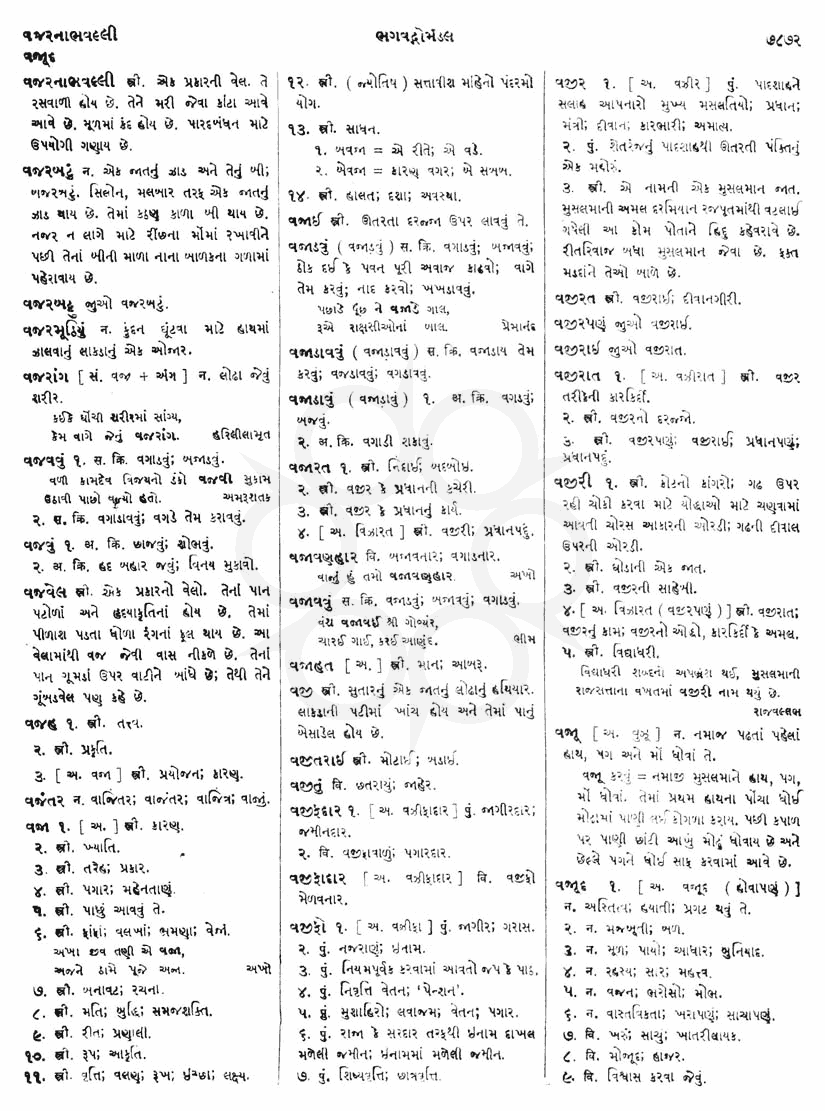 વજરનાભવલ્લી
ભગવદ્ગોમંડલ
૭૮૭૨
વજૂદ
વજરનાભવલ્લી સ્ત્રી. એક પ્રકારની વેલ. તે
રસવાળી હોય છે. તેને મરી જેવા કાંટા આવે
આવે છે. મૂળમાં કંદ હોય છે. પારદબંધન માટે
ઉપયોગી ગણાય છે.
વજરબટુ ન. એક જાતનું ઝાડ અને તેનું બી;
બજરબટું. સિલોન, મલબાર તરફ એક જાતનું
ઝાડ થાય છે. તેમાં કઠણ કાળા બી થાય છે.
નજર ન લાગે માટે રીંછના મોંમાં રખાવીને
પછી તેનાં બીની માળા નાના બાળકના ગળામાં
પહેરાવાય છે.
વજરબટ્ટુ જુઓ વજરબટું.
વજરમૂઠિયું ન. કુંદન ઘૂંટવા માટે હાથમાં
ઝાલવાનું લાકડાનું એક ઓજાર.
વજરાંગ [ સં. વજ્ર + અંગ ] ન. લોઢા જેવું
શરીર.
કઈકે ઘોંચી શરીરમાં સાંગ્ય,
કેમ વાગે જેનું વજરાંગ. હરિલીલામૃત
વજવવું ૧. સ. ક્રિ. વગાડવું; બજાડવું.
વળી કામદેવ વિજયનો ડંકો વજવી મુકામ
ઉઠાવી પાછો વળ્યો હતો. અમરૂશતક
૨. સ. ક્રિ. વગાડાવવું; વગડે તેમ કરાવવું.
વજવું ૧. અ. ક્રિ. છાજવું; શોભવું.
૨. અ. ક્રિ. હદ બહાર જવું; વિનય મુકાવો.
વજવેલ સ્ત્રી. એક પ્રકારનો વેલો. તેનાં પાન
પટોળાં અને હૃદયાકૃતિનાં હોય છે. તેમાં
પીળાશ પડતા ધોળા રંગનાં ફૂલ થાય છે. આ
વેલામાંથી વજ જેવી વાસ નીકળે છે. તેનાં
પાન ગૂમડાં ઉપર વાટીને બાંધે છે; તેથી તેને
ગૂંબડવેલ પણ કહે છે.
વજહ ૧. સ્ત્રી. તત્ત્વ.
૨. સ્ત્રી. પ્રકૃતિ.
૩. [ અ. વજા ] સ્ત્રી. પ્રયોજન; કારણ.
વજંતર ન. વાજિંતર; વાજંતર; વાજિંત્ર; વાજું.
વજા ૧. [ અ. ] સ્ત્રી. કારણ.
૨. સ્ત્રી. ખ્યાતિ.
૩. સ્ત્રી. તરેહ; પ્રકાર.
૪. સ્ત્રી. પગાર; મહેનતાણું.
૫. સ્ત્રી. પાછું આવવું તે.
૬. સ્ત્રી. ફાંફાં; વલખાં; ભ્રમણા; વેજાં.
અખા જીવ તણી એ વજા,
અજને ઠામે પૂજે અજા. અખો
૭. સ્ત્રી. બનાવટ; રચના.
૮. સ્ત્રી. મતિ; બુદ્ધિ; સમજશક્તિ.
૯. સ્ત્રી. રીત; પ્રણાલી.
૧૦. સ્ત્રી. રૂપ; આકૃતિ.
૧૧. સ્ત્રી. વૃત્તિ; વલણ; રૂખ; ઇચ્છા; લક્ષ્ય.
૧૨. સ્ત્રી. ( જ્યોતિષ ) સત્તાવીશ માંહેનો પંદરમો
યોગ.
૧૩. સ્ત્રી. સાધન.
૧. બવજા = એ રીતે; એ વડે.
૨. બેવજા = કારણ વગર; બે સબબ.
૧૪. સ્ત્રી. હાલત; દશા; અવસ્થા.
વજાઈ સ્ત્રી. ઊતરતા દરજ્જા ઉપર લાવવું તે.
વજાડવું ( વજાડવું ) સ. ક્રિ. વગાડવું; બજાવવું;
ઠોક દઈ કે પવન પૂરી અવાજ કાઢવો; વાગે
તેમ કરવું; નાદ કરવો; ખખડાવવું.
પછાડે પૂંછ ને વજાડે ગાલ,
રૂએ રાક્ષસીઓનાં બાલ. પ્રેમાનંદ
વજાડાવવું ( વજાડાવવું ) સ. ક્રિ. વજાડાય તેમ
કરવું; વજડાવવું; વગડાવવું.
વજાડાવું ( વજાડાવું ) ૧. અ. ક્રિ. વગડવું;
બજવું.
૨. અ. ક્રિ. વગાડી શકાવું.
વજારત ૧. સ્ત્રી. નિંદાઈ; બદબોઈ.
૨. સ્ત્રી. વજીર કે પ્રધાનની કચેરી.
૩. સ્ત્રી. વજીર કે પ્રધાનનું કાર્ય.
૪. [ અ. વિઝારત ] સ્ત્રી. વજીરી; પ્રધાનપદું.
વજાવણહાર વિ. બજાવનાર; વગાડનાર.
વાજું હું તમો વજાવણહાર. અખો
વજાવવું સ. ક્રિ. વજાડવું; બજાવવું; વગાડવું.
વંશ વજાવઈ શ્રી ગોવ્યંર,
ચારઈ ગાઈ, કરઈ આણંદ. ભીમ
વજાહત [ અ. ] સ્ત્રી. માન; આબરૂ.
વજી સ્ત્રી. સુતારનું એક જાતનું લોઢાનું હથિયાર.
લાકડાની પટીમાં ખાંચ હોય અને તેમાં પાનું
બેસાડેલ હોય છે.
વજીતરાઈ સ્ત્રી. મોટાઈ; બડાઈ.
વજીતું વિ. છતરાયું; જાહેર.
વજીફેદાર ૧. [ અ. વઝીફાદાર ] પું. જાગીરદાર;
જમીનદાર.
૨. વિ. વજીફાવાળું; પગારદાર.
વજીફાદાર [ અ. વઝીફાદાર ] વિ. વજીફો
મેળવનાર.
વજીફો ૧. [ અ. વઝીફા ] પું. જાગીર; ગરાસ.
૨. પું. નજરાણું; ઇનામ.
૩. પું. નિયમપૂર્વક કરવામાં આવતો જપ કે પાઠ.
૪. પું. નિવૃત્તિ વેતન; ‘પેન્શન’.
૫. પું. મુશાહિરો; લવાજમ; વેતન; પગાર.
૬. પું. રાજા કે સરદાર તરફથી ઇનામ દાખલ
મળેલી જમીન; ઇનામમાં મળેલી જમીન.
૭. પું. શિષ્યવૃત્તિ; છાત્રવૃત્તિ.
વજીર ૧. [ અ. વઝીર ] પું. પાદશાહને
સલાહ આપનારો મુખ્ય મસલતિયો; પ્રધાન;
મંત્રી; દીવાન; કારભારી; અમાત્ય.
૨. પું. શેતરંજનું પાદશાહથી ઊતરતી પંક્તિનું
એક મહોરું.
૩. સ્ત્રી. એ નામની એક મુસલમાન જાત.
મુસલમાની અમલ દરમિયાન રજપૂતમાંથી વટલાઈ
ગયેલી આ કોમ પોતાને હિંદુ કહેવરાવે છે.
રીતરિવાજ બધા મુસલમાન જેવા છે. ફક્ત
મડદાંને તેઓ બાળે છે.
વજીરત સ્ત્રી. વજીરાઈ; દીવાનગીરી.
વજીરપણું જુઓ વજીરાઈ.
વજીરાઈ જુઓ વજીરાત.
વજીરાત ૧. [ અ. વઝીરાત ] સ્ત્રી. વજીર
તરીકેની કારકિર્દી.
૨. સ્ત્રી. વજીરનો દરજ્જો.
૩. સ્ત્રી. વજીરપણું; વજીરાઈ; પ્રધાનપણું;
પ્રધાનપદું.
વજીરી ૧. સ્ત્રી. કોટનો કાંગરો; ગઢ ઉપર
રહી ચોકી કરવા માટે યોદ્ધાઓ માટે ચણવામાં
આવતી ચોરસ આકારની ઓરડી; ગઢની દીવાલ
ઉપરની ઓરડી.
૨. સ્ત્રી. ઘોડાની એક જાત.
૩. સ્ત્રી. વજીરની સાહેબી.
૪. [ અ. વિઝારત ( વજીરપણું ) ] સ્ત્રી. વજીરાત;
વજીરનું કામ; વજીરનો ઓદ્દો, કારકિર્દી કે અમલ.
૫. સ્ત્રી. વિદ્યાધરી.
વિદ્યાધરી શબ્દનો અપભ્રંશ થઈ, મુસલમાની
રાજસત્તાના વખતમાં વજીરી નામ થયું છે.
રાજવલ્લભ
વજૂ [ અ. વુઝૂ ] ન. નમાજ પઢતાં પહેલાં
હાથ, પગ અને મોં ધોવાં તે.
વજૂ કરવું = નમાજી મુસલમાને હાથ, પગ,
મોં ધોવાં. તેમાં પ્રથમ હાથના પોંચા ધોઈ
મોઢામાં પાણી લઈ કોગળા કરાય. પછી કપાળ
પર પાણી છાંટી આખું મોઢું ધોવાય છે અને
છેલ્લે પગને ધોઈ સાફ કરવામાં આવે છે.
વજૂદ ૧. [ અ. વજૂદ ( હોવાપણું ) ]
ન. અસ્તિત્વ; હયાતી; પ્રગટ થવું તે.
૨. ન. મજબૂતી; બળ.
૩. ન. મૂળ; પાયો; આધાર; બુનિયાદ.
૪. ન. રહસ્ય; સાર; મહત્ત્વ.
૫. ન. વજન; ભરોસો; મોભ.
૬. ન. વાસ્તવિકતા; ખરાપણું; સાચાપણું.
૭. વિ. ખરું; સાચું; ખાતરીલાયક.
૮. વિ. મોજૂદ; હાજર.
૯. વિ. વિશ્વાસ કરવા જેવું.